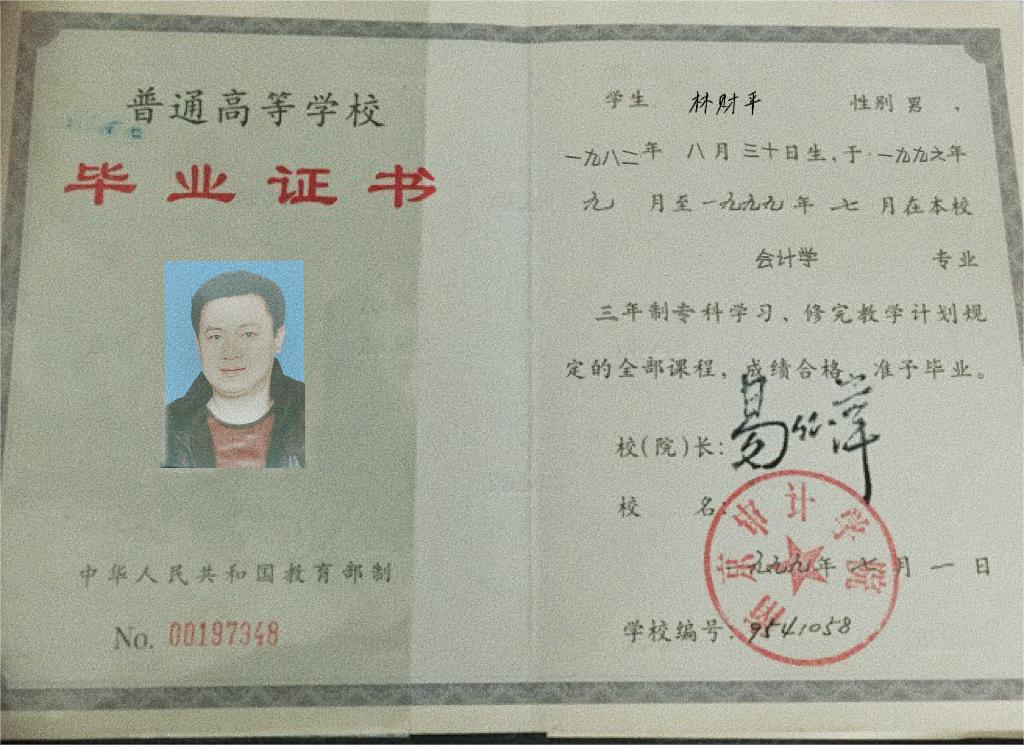 普通高等学校
毕业证书
中华人民共和国教育部制
No. 00197348
学生 林财平 性别 男 ,
一九八二年 八月三十日生,于一九九六年
九 月至一九九九年 七 月在本校
会计学 专业
三年制专科学习、修完教学计划规
定的全部课程,成绩合格,准予毕业。
校(院)长:易仙萍
校 名:
南京审计学院
一九九九年七月一日
学校编号:9541058